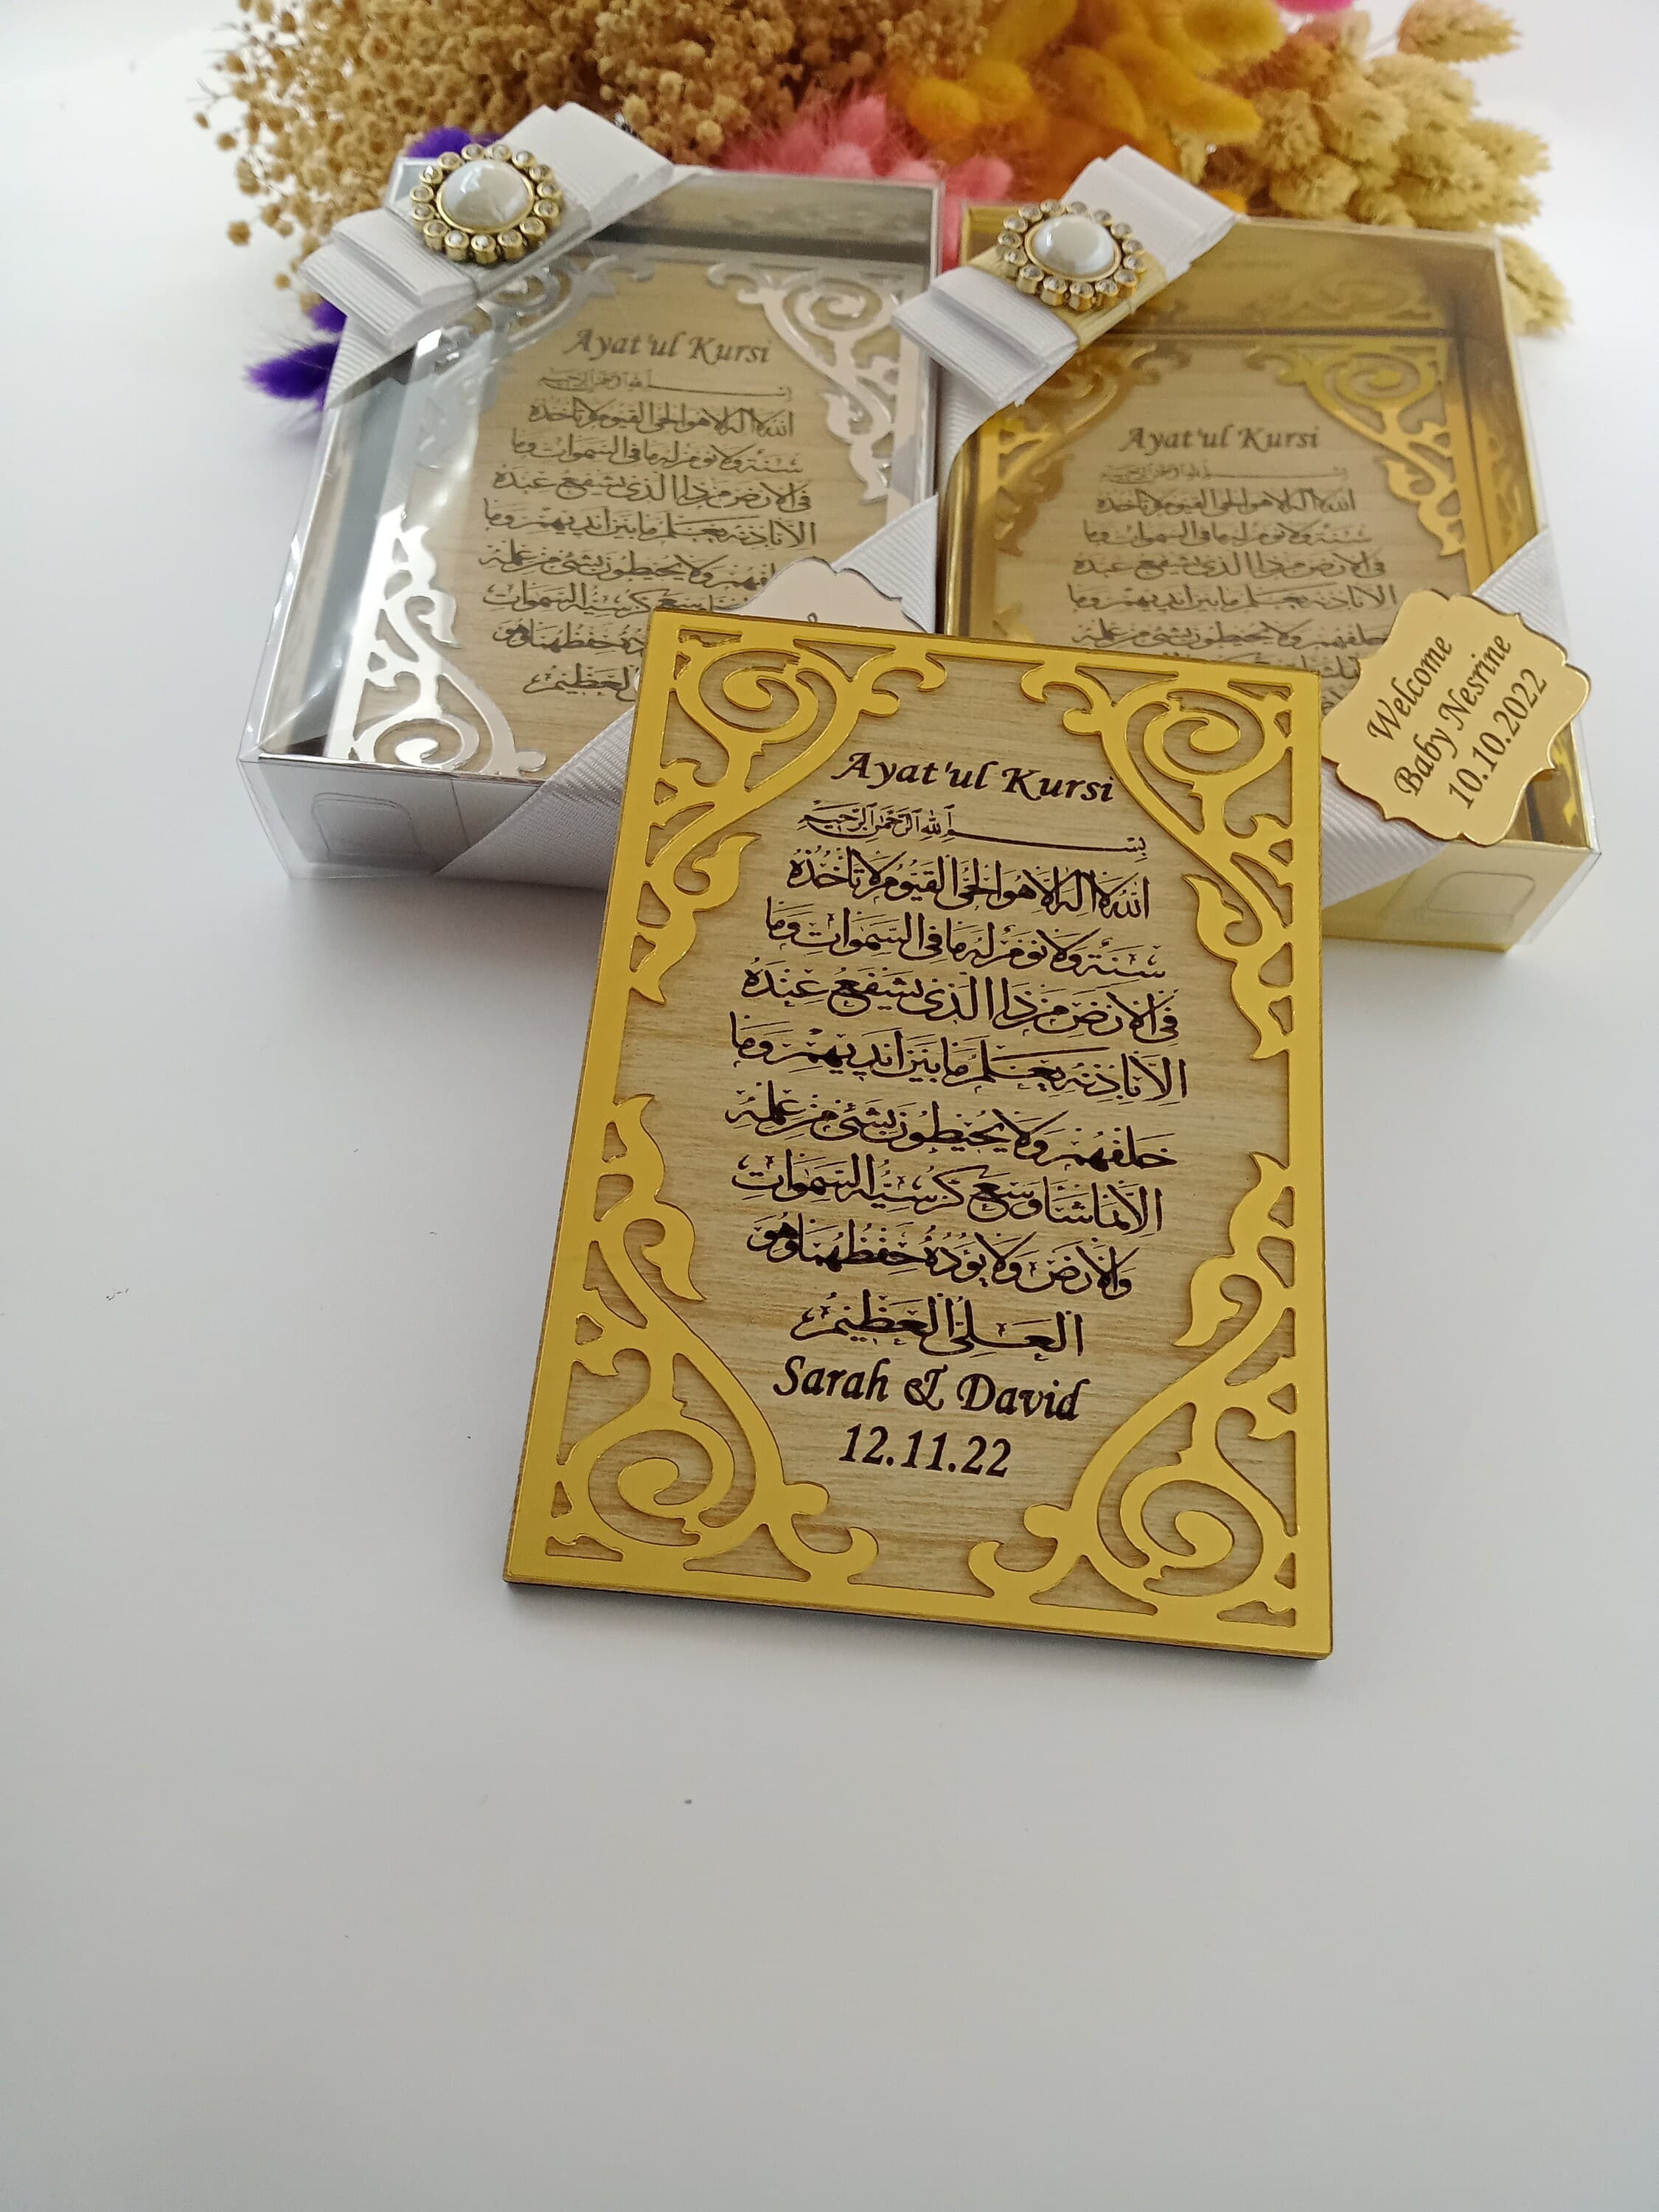 Ayat'ul Kursi
بسم الله الرحمن الرحيم
الله لا اله الا هو الحي القيوم لا تأخذه
سنة ولا نوم له ما في السموات وما
في الارض من ذا الذي يشفع عنده
الا باذنه يعلم ما بين ايديهم وما
خلفهم ولا يحيطون بشئ من علمه
الا بما شا وسع كرسيه السموات
والارض ولا يؤده حفظهما وهو
العلي العظيم
Sarah & David
12.11.22
Ayat'ul Kursi
بسم الله الرحمن الرحيم
الله لا اله الا هو الحي القيوم لا تأخذه
سنة ولا نوم له ما في السموات وما
في الارض من ذا الذي يشفع عنده
الا باذنه يعلم ما بين ايديهم وما
خلفهم ولا يحيطون بشئ من علمه
وسع كرسيه السموات
حفظهما وهو
العظيم
Ayat'ul Kursi
بسم الله الرحمن الرحيم
الله لا اله الا هو الحي القيوم لا تأخذه
سنة ولا نوم له ما في السموات وما
في الارض من ذا الذي يشفع عنده
الا باذنه يعلم ما بين ايديهم وما
خلفهم ولا يحيطون بشئ من علمه
Welcome
Baby Nesrine
10.10.2022